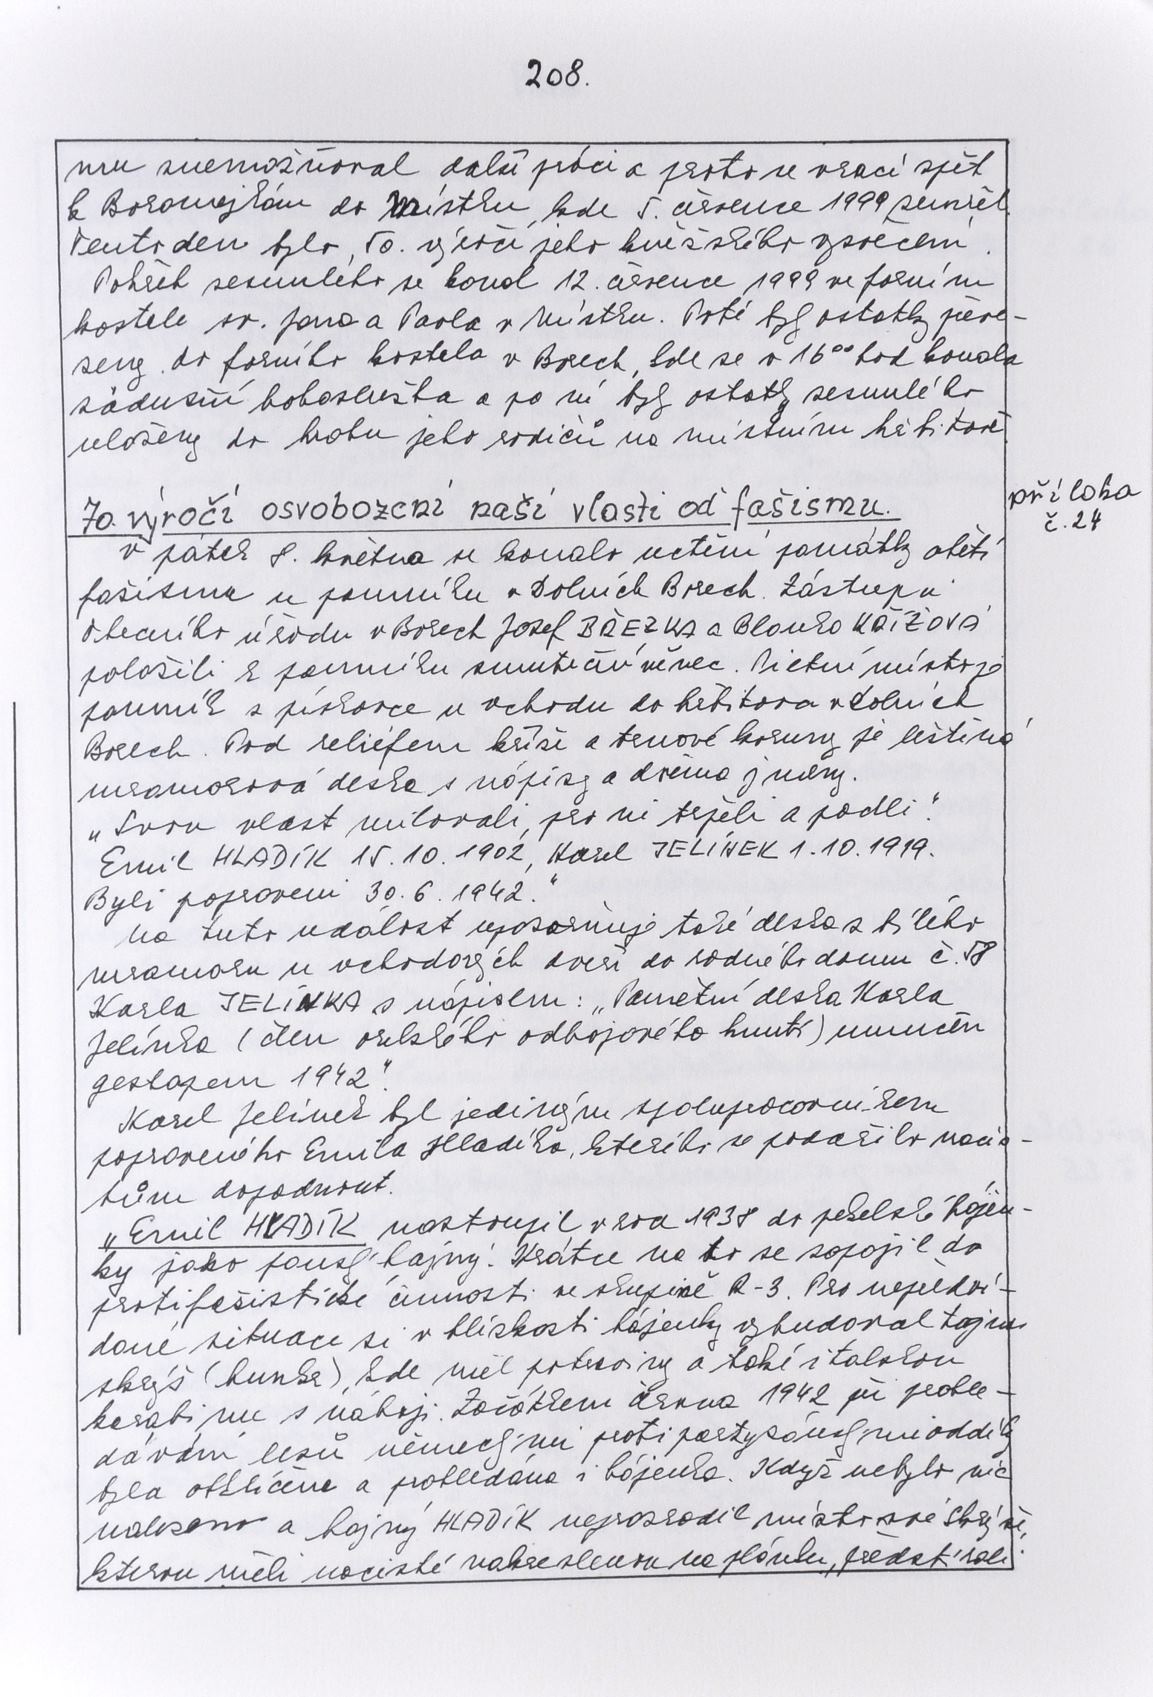 208.
mu znemožňoval další práci a proto se vrací zpět
k Boromejkám do Místku, kde 5. července 1999 zemřel.
Tento den bylo 50. výročí jeho kněžského vysvěcení.
Pohřeb zesnulého se konal 12. července 1999 ve farním
kostele sv. Jana a Pavla v Místku. Poté byly ostatky převe-
zeny do farního kostela v Borech, kde se v 16⁰⁰ hod konala
zádušní bohoslužba a po ní byly ostatky zesnulého
uloženy do hrobu jeho rodičů na místním hřbitově
70. výročí osvobození naší vlasti od fašismu.
příloha
č. 24
V pátek 8. května se konalo uctění památky obětí
fašismu u pomníku v Dolních Borech. Zástupci
Obecního úřadu v Borech Josef BŘEZKA a Blanka KŘÍŽOVÁ
položili k pomníku smuteční věnec. Pietní místo je
pomník z pískovce u vchodu do hřbitova v Dolních
Borech. Pod reliéfem kříže a trnové koruny je leštěná
mramorová deska s nápisy a dvěma jmény.
„Svou vlast milovali, pro ni trpěli a padli".
Emil HLADÍK 15.10.1902, Karel JELÍNEK 1.10.1919.
Byli popraveni 30.6.1942."
Na tuto událost upozorňuje také deska z bílého
mramoru u vchodových dveří do rodného domu č. 58
Karla JELÍNKA s nápisem: „Pamětní deska Karla
Jelínka (člen orelského odbojového hnutí) umučen
gestapem 1942".
Karel Jelínek byl jediným spolupracovníkem
popraveného Emila Hladíka, kterého se podařilo nacis-
tům dopadnout.
„Emil HLADÍK nastoupil v roce 1938 do pekelské hájen-
ky jako panský hajný. Krátce na to se zapojil do
protifašistické činnosti ve skupině R-3. Pro nepředví-
dané situace si v blízkosti hájenky vybudoval tajnou
skrýš (bunkr), kde měl potraviny a také italskou
karabinu s náboji. Začátkem června 1942 při prohle-
dávání lesů německými protipartyzánskými oddíly
byla obklíčena a prohledána i hájenka. Když nebylo nic
nalezeno a hajný HLADÍK neprozradil místo své skrýše,
kterou měli nacisté nakreslenou na plánku, předstírali